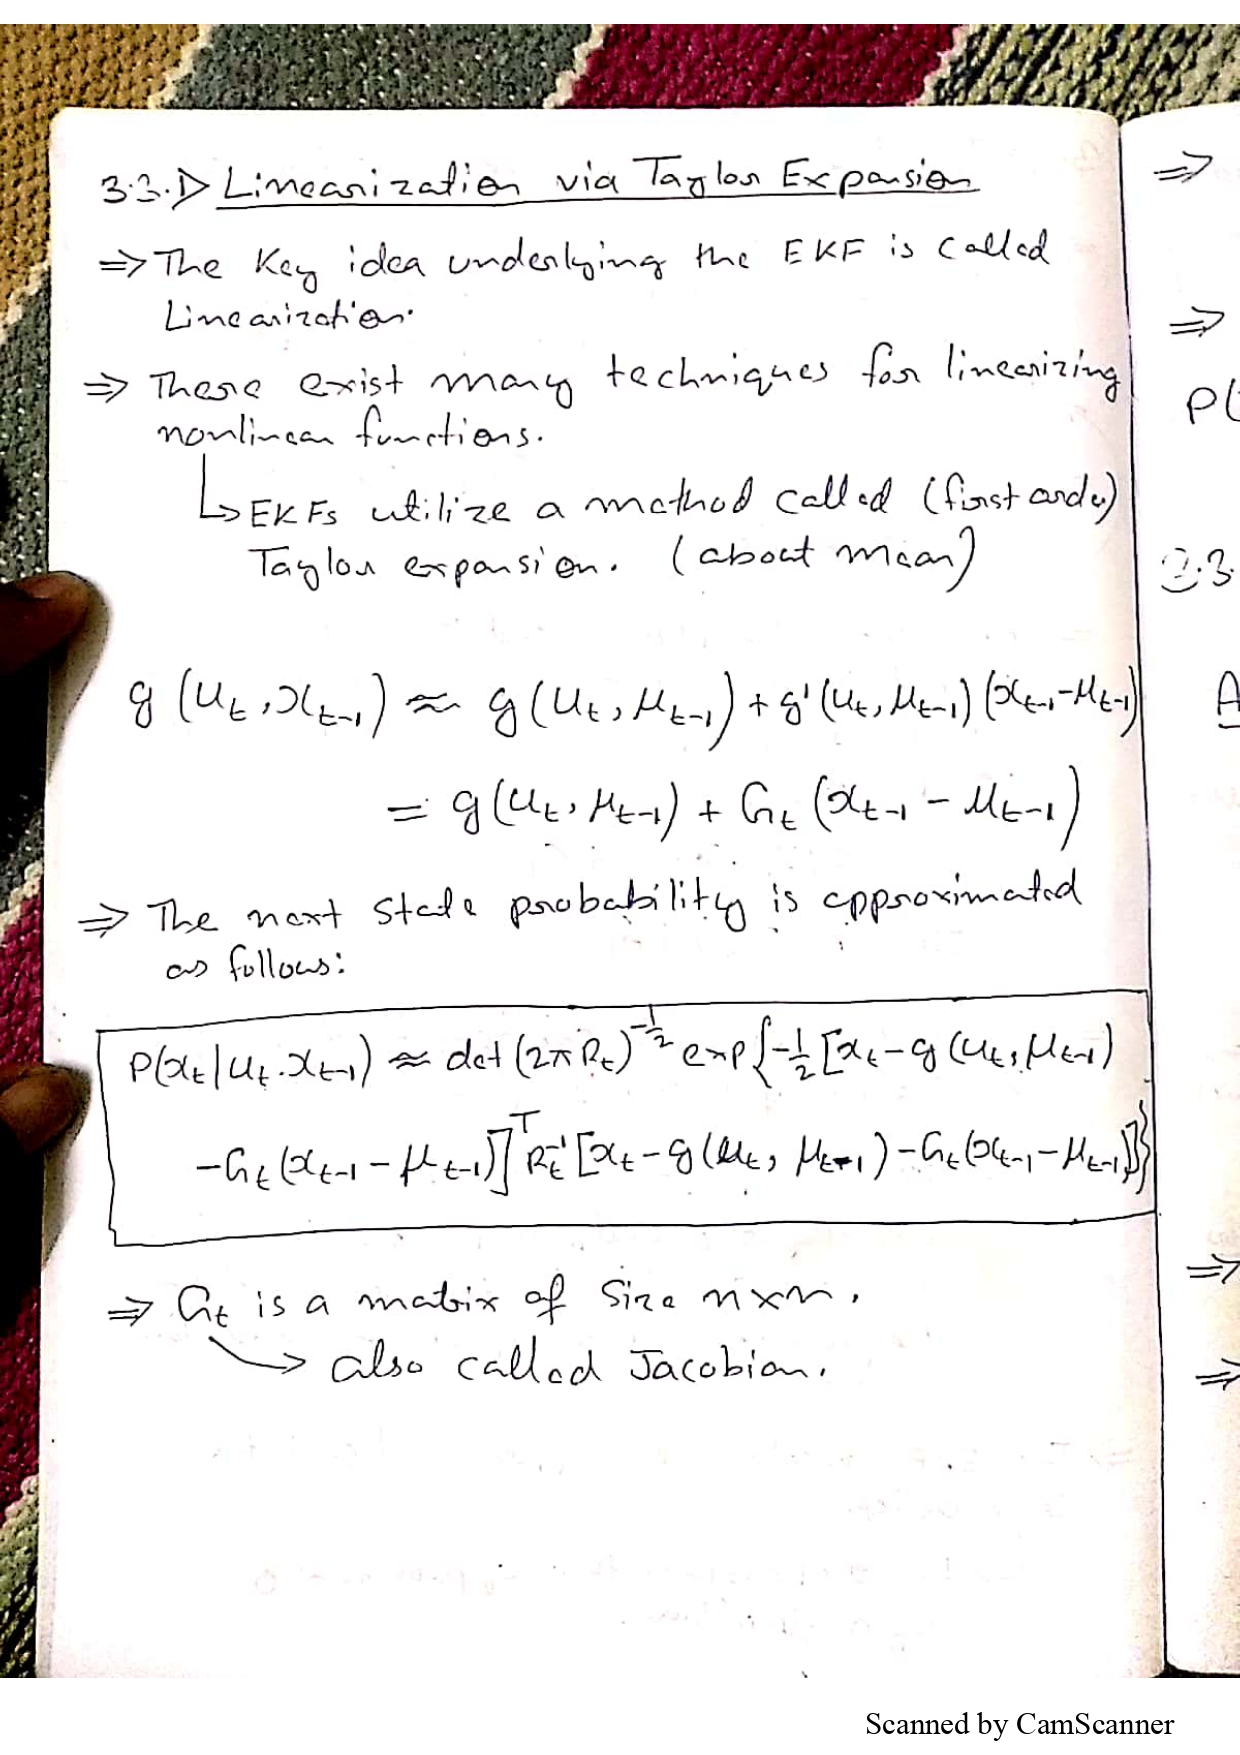 3.3.1> Linearization via Taylor Expansion
⇒ The Key idea underlying the EKF is called
Linearization.
⇒ There exist many techniques for linearizing
nonlinear functions.
↳ EKFs utilize a method called (first order)
Taylor expansion. (about mean)
g(u_t, x_{t-1}) ≈ g(u_t, μ_{t-1}) + g'(u_t, μ_{t-1}) (x_{t-1} - μ_{t-1})
= g(u_t, μ_{t-1}) + G_t (x_{t-1} - μ_{t-1})
⇒ The next state probability is approximated
as follows:
P(x_t | u_t, x_{t-1}) ≈ det(2π R_t)^{-1/2} exp{-1/2 [x_t - g(u_t, μ_{t-1})
- G_t (x_{t-1} - μ_{t-1})]^T R_t^{-1} [x_t - g(u_t, μ_{t-1}) - G_t (x_{t-1} - μ_{t-1})]}
⇒ G_t is a matrix of size n×n.
→ also called Jacobian.
⇒
⇒
P(
3.3.
A
⇒
⇒
Scanned by CamScanner